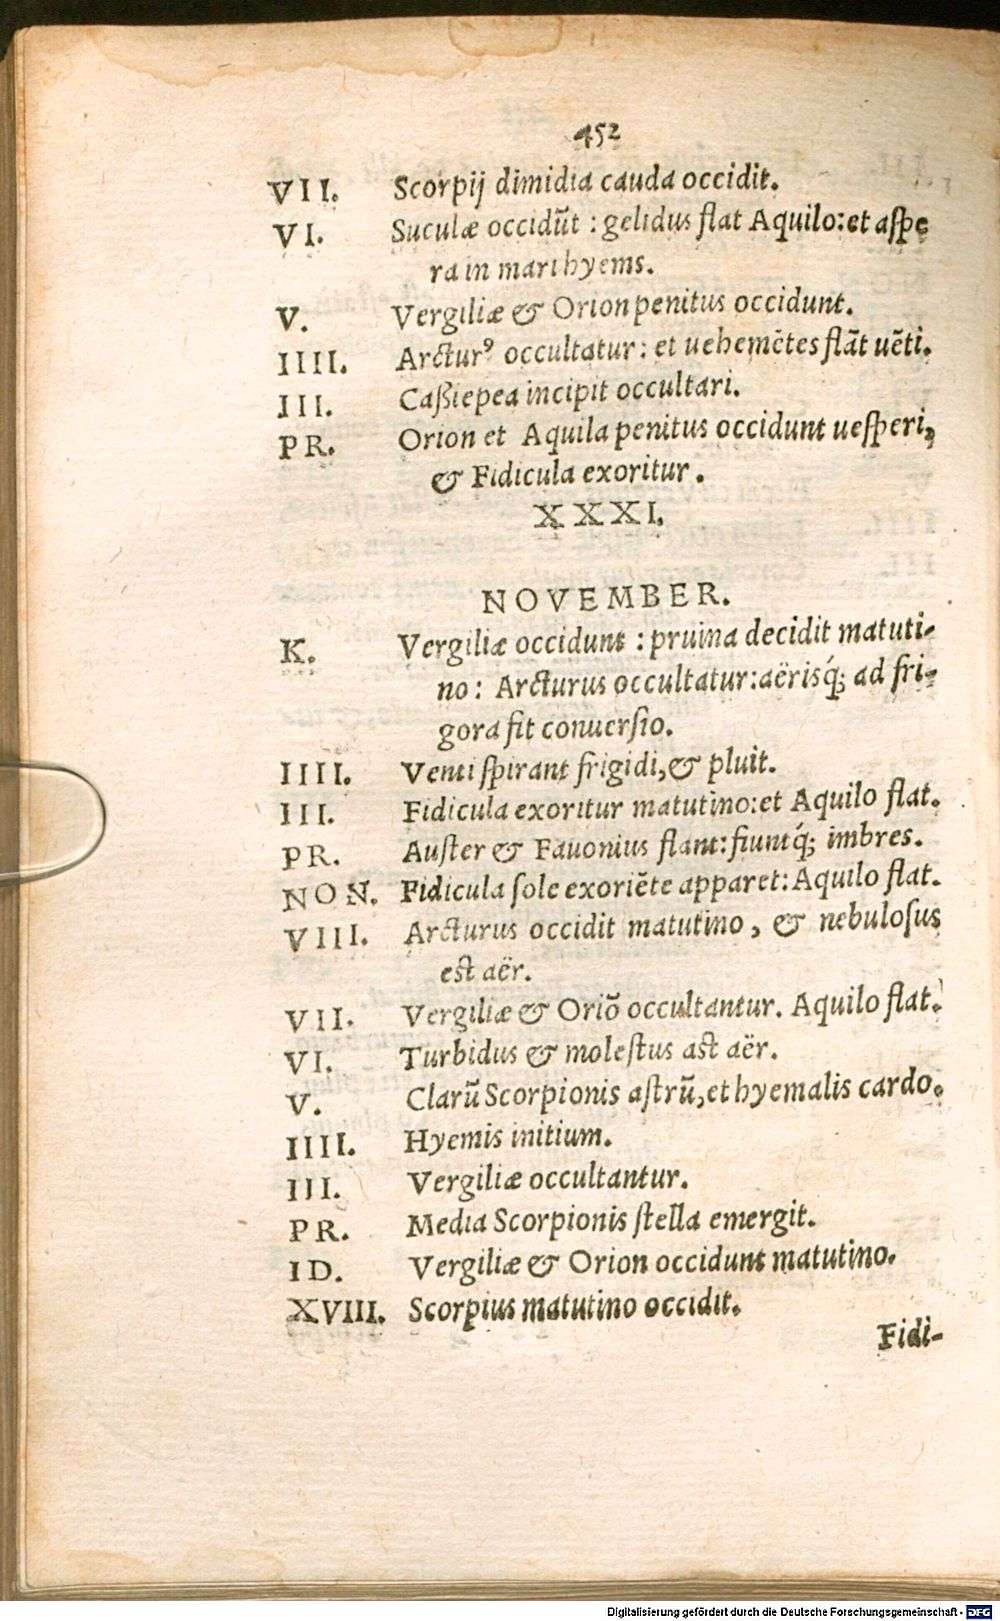 452
VII. Scorpij dimidia cauda occidit.
VI. Suculæ occidũt : gelidus flat Aquilo: et aſpe
ra in mari hyems.
V. Vergiliæ & Orion penitus occidunt.
IIII. Arcturꝰ occultatur: et uehemẽtes flãt uẽti.
III. Caßiepea incipit occultari.
PR. Orion et Aquila penitus occidunt ueſperi,
& Fidicula exoritur.
XXXI.
NOVEMBER.
K. Vergiliæ occidunt : pruina decidit matuti-
no: Arcturus occultatur: aërisq́; ad fri-
gora fit conuerſio.
IIII. Venti ſpirant frigidi, & pluit.
III. Fidicula exoritur matutino: et Aquilo flat.
PR. Auſter & Fauonius flant: fiuntq́; imbres.
NON. Fidicula ſole exoriẽte apparet: Aquilo flat.
VIII. Arcturus occidit matutino, & nebuloſus
eſt aër.
VII. Vergiliæ & Oriõ occultantur. Aquilo flat.
VI. Turbidus & moleſtus aſt aër.
V. Clarũ Scorpionis aſtrũ, et hyemalis cardo.
IIII. Hyemis initium.
III. Vergiliæ occultantur.
PR. Media Scorpionis ſtella emergit.
ID. Vergiliæ & Orion occidunt matutino.
XVIII. Scorpius matutino occidit.
Fidi-
Digitalisierung gefördert durch die Deutsche Forschungsgemeinschaft - DFG